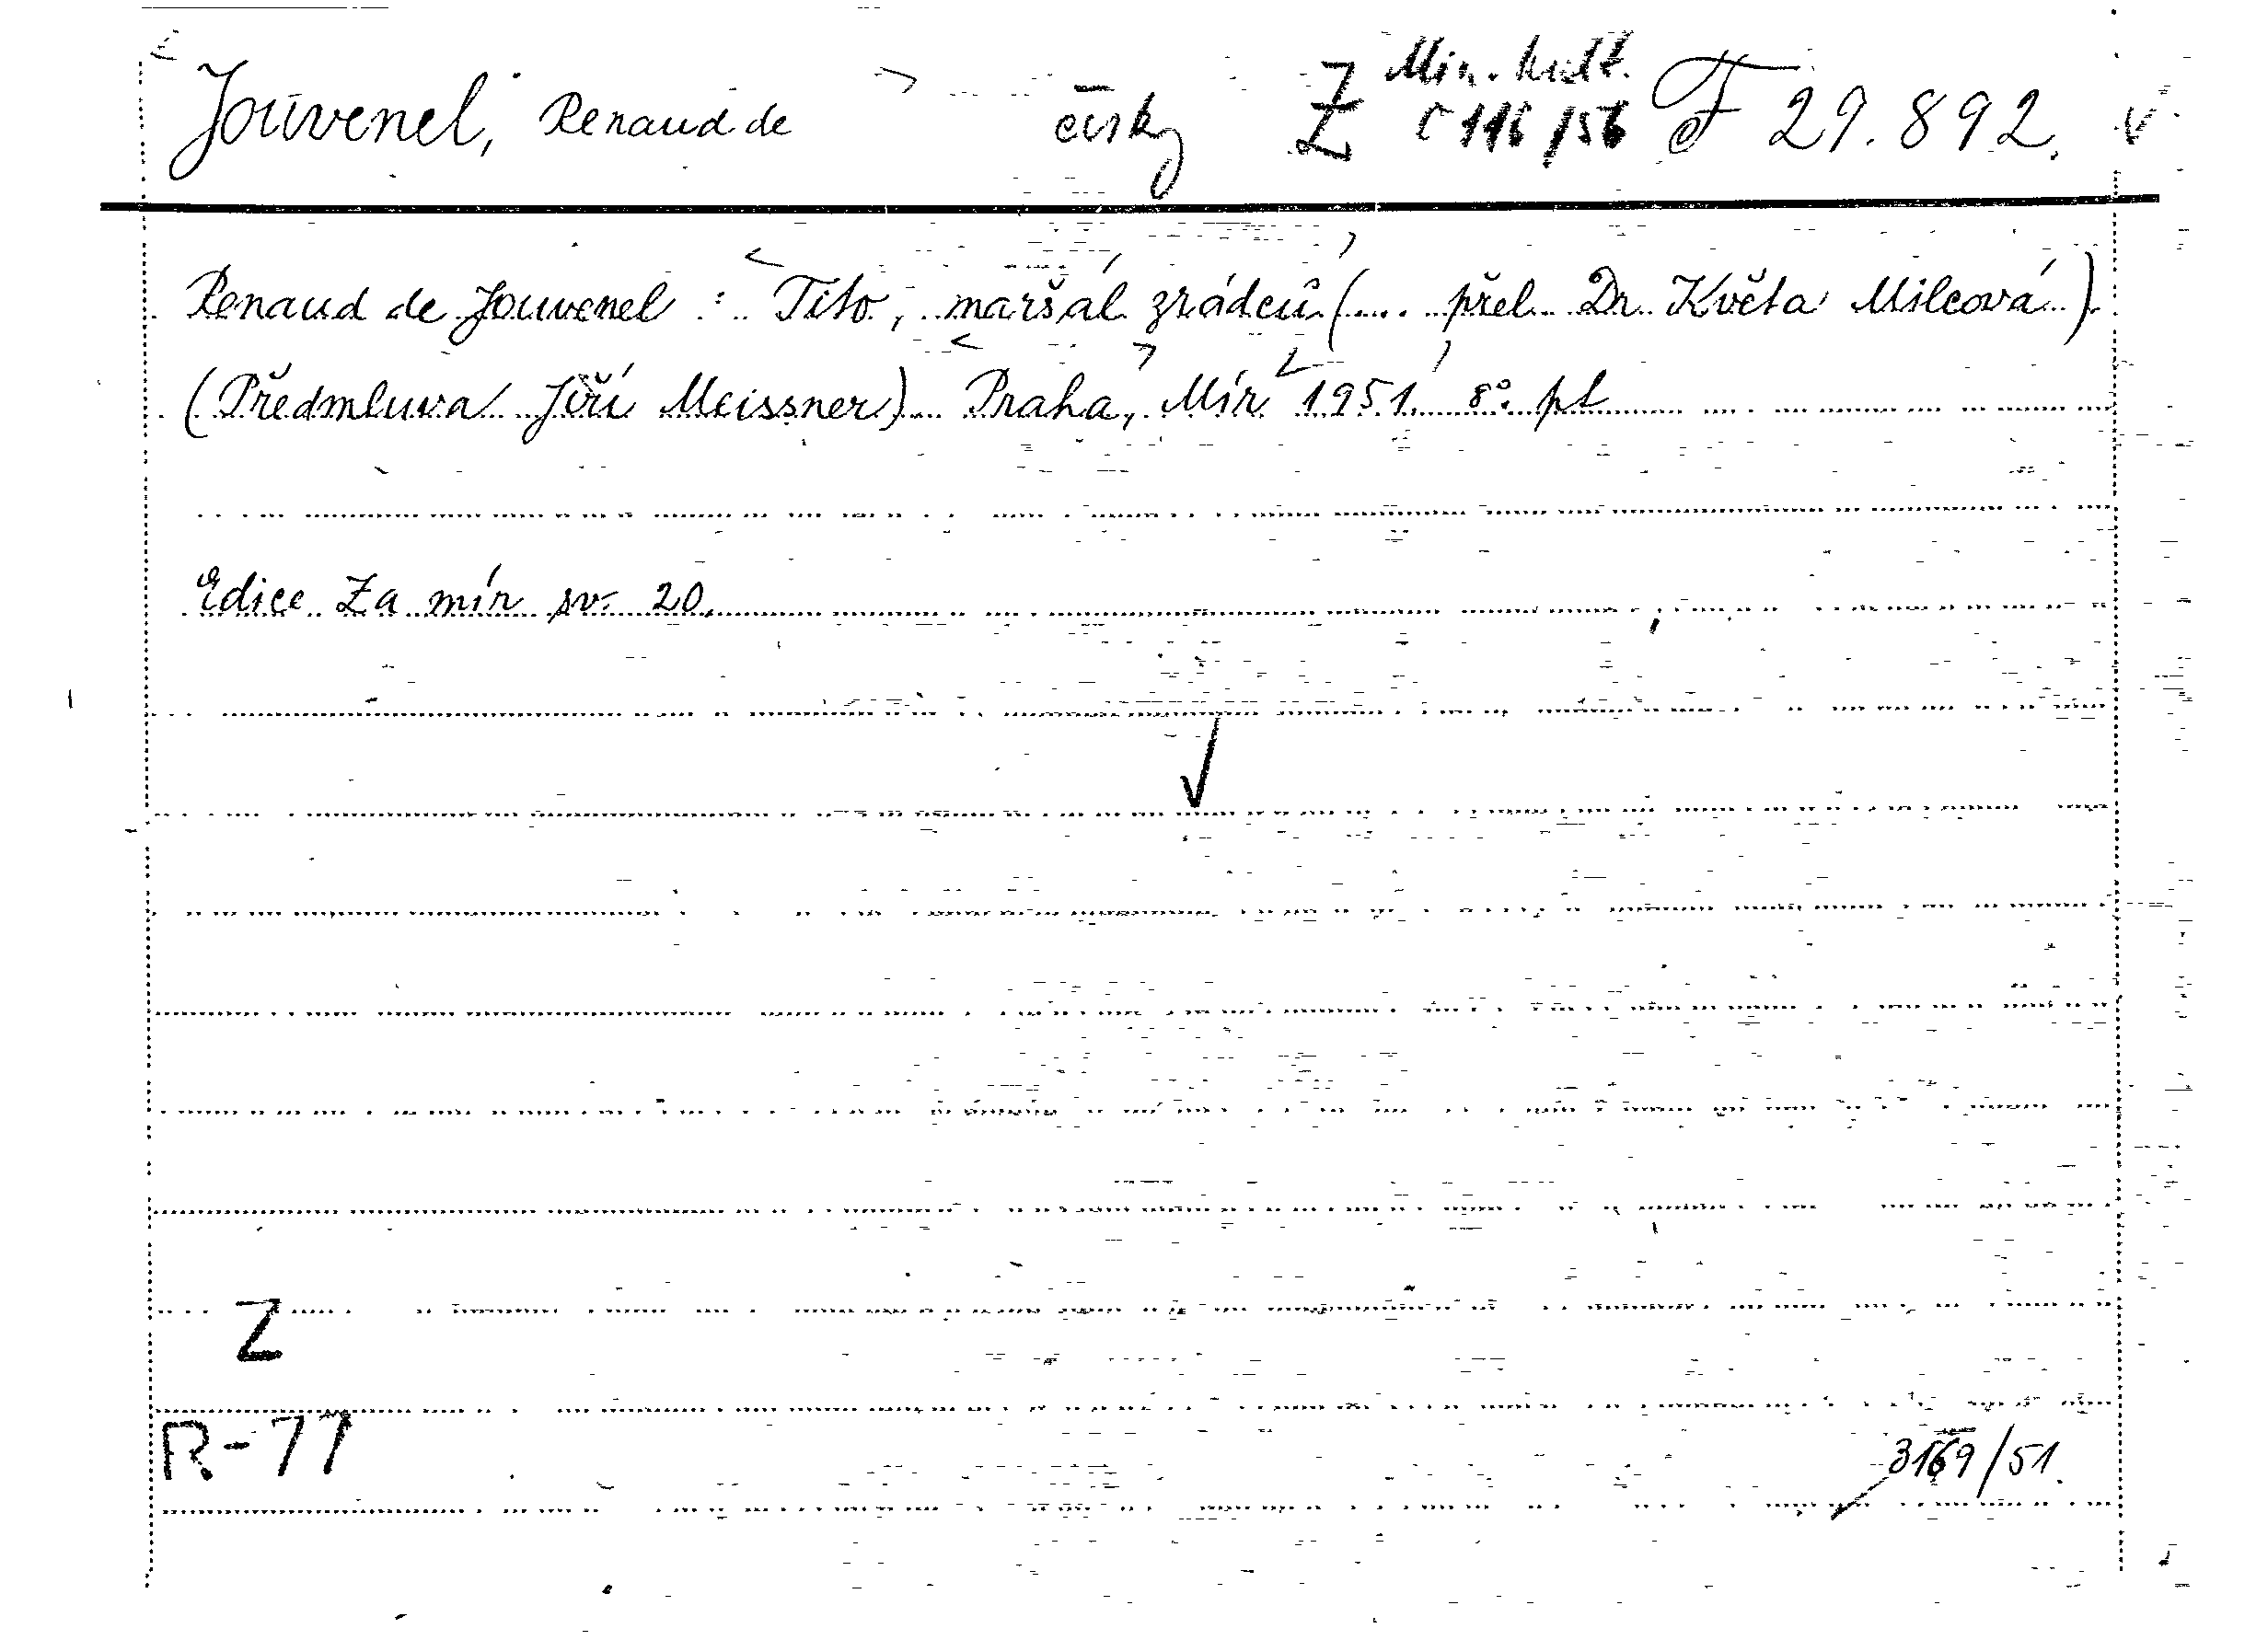 Jouvenel, Renaud de česky Z Min. kult. F 29.892.
č 116/56
Renaud de Jouvenel : Tito, maršál zrádců (.... přel. Dr. Květa Milcová)
(Předmluva Jiří Meissner) Praha, Mír 1951 8° pt
Edice Za mír sv. 20.
Z
R-77
3169/51.